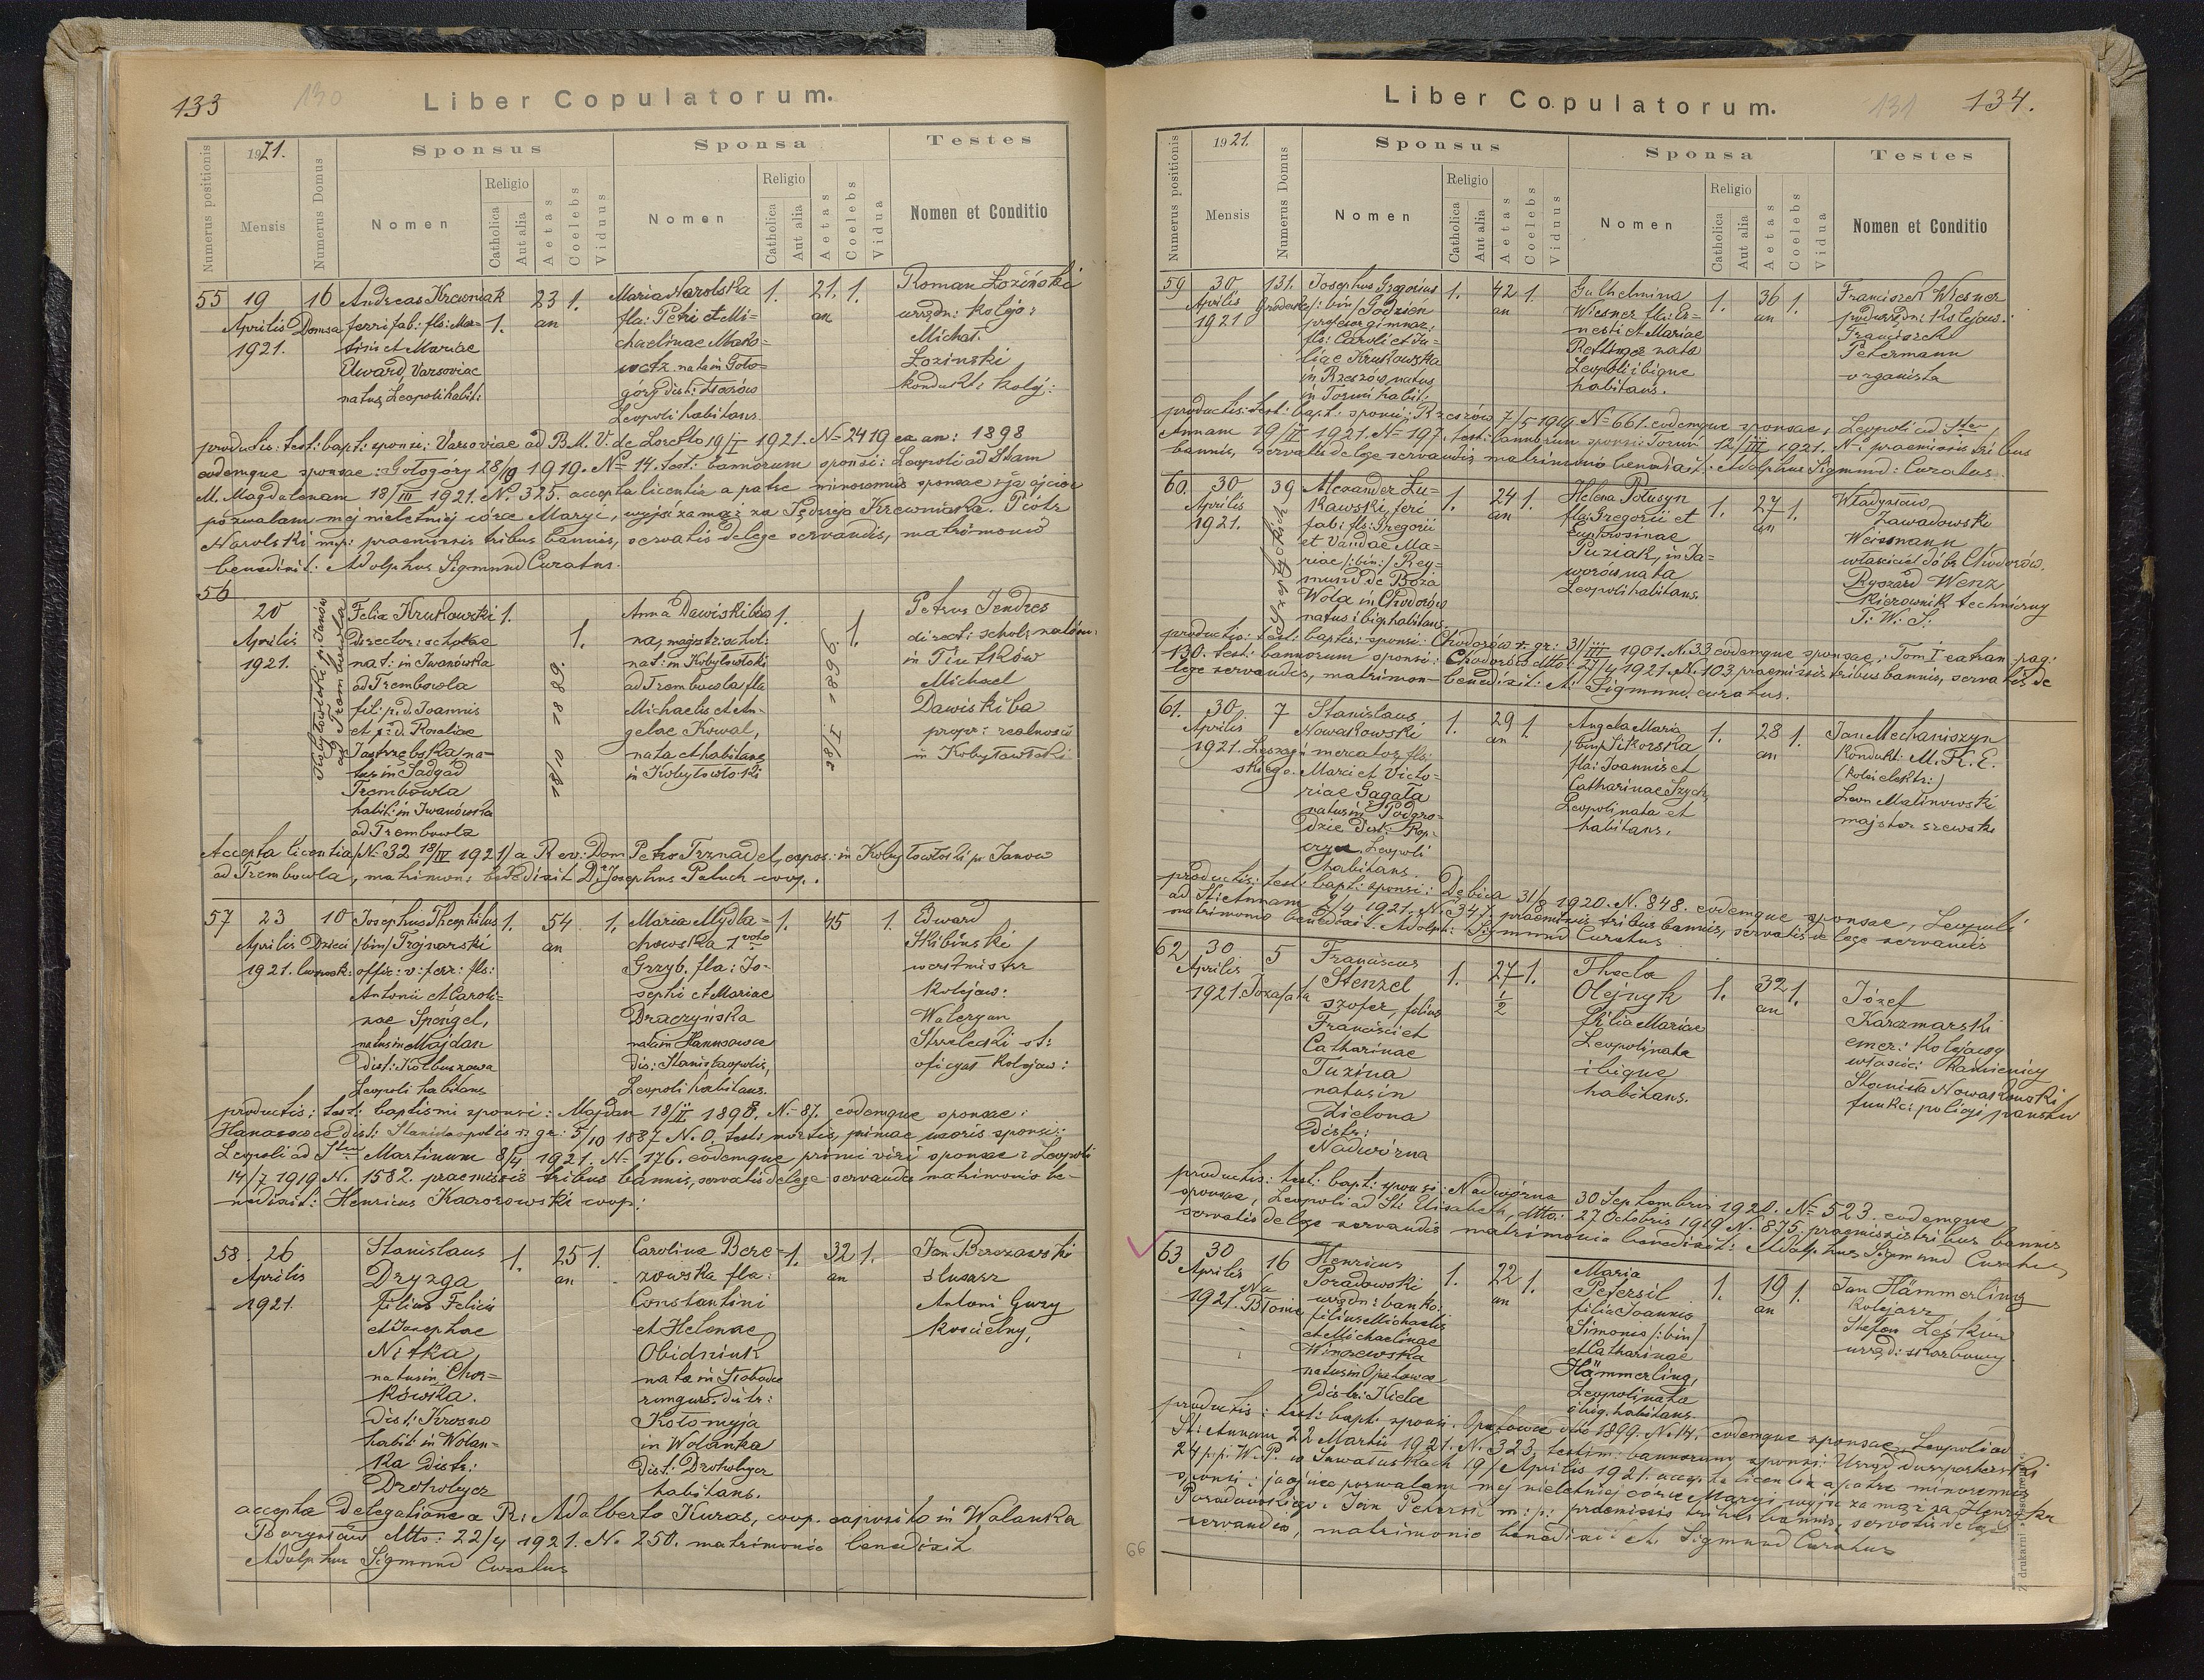 133
130
Liber Copulatorum.
Numerus positionis
1921.
Mensis
Numerus Domus
Sponsus
Nomen
Religio
Catholica
Aut alia
Aetas
Coelebs
Viduus
Sponsa
Nomen
Religio
Catholica
Aut alia
Aetas
Coelebs
Vidua
Testes
Nomen et Conditio
55 19 16 Andreas Krewniak 23 1. Maria Narolska 1. 21. 1. Roman Łoziński
Aprilis ferri fab: fls: Mar= 1. an fla: Petri et Mi= an urzędn: kolejo:
1921. tini et Mariae chaelinae Mako= Michał
Uward, Varsoviae nata in Goło= Łoziński
natus, Leopoli habit: góry dist: Złoczów kondukt: kolej:
Leopoli habitans.
productis: test: bapt: sponsi: Varsoviae ad B.M.V. de Loretto 19/I 1921. N= 2419 ex an: 1898
eodemque sponsae: Gołogóry 28/ 1919. N= 14. test: bannorum sponsi: Leopoli ad Stam
M. Magdalenam 18/III 1921. N. 325. accepta licentia a patre minorennis sponsae: ja ojciec
pozwalam mej nieletniej córce Maryi, wyjść za mąż za Jędrzeja Krewniaka. Piotr
Narolski mp: praemissis tribus bannis, servatis de lege servandis, matrimonio
benedixit: Adolphus Sigmund Curatus.
56
20 Felix Krukowski 1. Anna Dawiskiba 1. Petrus Jendres
Aprilis Director: scholae 1. na, magistr: schol: 1. direct: schol: natus:
1921. nat: in Iwanówka nat: in Kobyłowłoki in
ad Trembowla ad Trembowla fla Michael
fil: p. d. Joannis Michaelis et An- Dawiskiba
et p: d. Rosaliae gelae Kowal, propr: realności
Jastrzębska, na- nata et habitans in Kobyłowłoki
tus in Sadgad in Kobyłowłoki
Trembowla
habit: in Iwanówka
ad Trembowla
Kobyłowłoki p: Janów
ad Trembowla
Accepta licentia N: 32 18/IV 1921 a Rev: Dom Petro Trznadel, expos: in Kobyłowłoki p: Janow
ad Trembowla, matrimon: benedixit D: Josephus Paluch coop.
57 23 10 Josephus Theophilus 1. 54 1. Maria Mydla= 1. 45 1. Edward
Aprilis Dzieci /bin/ Trojnarski an chowska 1 voto Skibiński
1921. Lwowsk: offic: v: ferr: fls: Grzyb, fla: Jo- werkmistrz
Antonii et Caroli= sephi et Mariae kolejow:
nae Spengel, Draczyńska Waleryan
natus in Majdan nata in Hanusowce Strzelecki st:
dist: Kolbuszowa dis: Stanislaopolis, oficyał kolejow:
Leopoli habitans Leopoli habitans.
productis: test: baptismi sponsi: Majdan 18/II 1898. N- 87. eodemque sponsae:
Hanusowce dist: Stanislaopolis r: gr: 5/10 1887 N. 0. test: mortis, primae uxoris sponsi:
Leopoli ad Stum Martinum 8/4 1921. N- 176. eodemque primi viri sponsae: Leopoli
14/7 1919 N. 1582. praemissis tribus bannis, servatis de lege servandis matrimonio be-
nedixit: Henricus Kaczorowski coop:
58. 26 Stanislaus 1. 25 1. Carolina Bere- 1. 32 1. Jan Brzozowski
Aprilis Dryzga an zowska fla: an ślusarz
1921. filius Felicis Constantini Antoni Guzy
et Josephae et Helenae kościelny,
Nitka Obidniuk
natus in Chor= nata in Słoboda
kówka rungurs: distr:
dist: Krosno Kołomyja
habit: in Wolan= in Wolanka
ka distr: dist: Drohobycz
Drohobycz habitans.
accepta delegatione a R: Adalberto Kuras, coop. exposito in Wolanka
Borysław dtto: 22/4 1921. N. 250. matrimonio benedixit
Adolphus Sigmund Curatus
Liber Copulatorum.
131
134.
Numerus positionis
1921.
Mensis
Numerus Domus
Sponsus
Nomen
Religio
Catholica
Aut alia
Aetas
Coelebs
Viduus
Sponsa
Nomen
Religio
Catholica
Aut alia
Aetas
Coelebs
Vidua
Testes
Nomen et Conditio
59 30 131. Josephus Gregorius 1. 42 1. Gulhelmina 1. 36 1. Franciszek Wiesner
Aprilis Gródecka /: bin/ Godzień an Wiesner fla: Er= an podurzędn: kolejow.
1921 profesor gimnaz: nesti et Mariae Franciszek
fls: Caroli et Ju- Rettinger nata Petermann
liae Krukowska Leopoli ibique organista
in Rzeszów natus habitans.
in Toruń habit:
productis: test: bapt: sponsi: Rzeszów 7/5 1919. N= 661. eodemque sponsae: Leopoli ad Stam
Annam 19/IV 1921. N- 197. test: bannorum sponsi: Toruń 12/III 1921. N- praemissis tribus
bannis, servatis de lege servandis matrimonio benedixit: Adolphus Sigmund: Curatus.
60. 30 39 Alexander Łu= 1. 24 1. Helena Połuszyn 1. 27 1. Władysław
Aprilis kawski, feri an fla: Gregorii et an Zawadowski
1921. fab: fls: Gregorii Euphrosinae Weissmann
et Vandae Ma= Puziak, in Ja= właściciel dóbr Chodorów.
riae /: bin:/ Rey= worów nata Ryszard Wenz
mund de Boża Leopoli habitans. kierownik techniczny
Wola in Chodorów T. W. S.
natus ibiq: habitans.
productis: test: baptis: sponsi: Chodorów r. gr: 31/III 1901. N. 33 eodemque sponsae: Tom I extran pag:
130. test: bannorum sponsi: Chodorów dtto: 27/4 1921. N. 103 praemissis tribus bannis, servatis de
lege servandis, matrimon- benedixit: A: Sigmund, curatus.
61. 30 7 Stanislaus 1. 29 1. Angela Maria 1. 28 1. Jan Mechaniszyn
Aprilis Nowakowski an /bin/ Sikorska an kondukt: M. K. E.
1921. mercator, fls: fla: Joannis et (kolei elektr:)
Marci et Victo= Catharinae Szych, Leon Malinowski
riae Gągała Leopoli nata et majster szewski
natus in Podgro= habitans.
dzie Dist: Rop-
czyce, Leopoli
habitans.
productis: test: bapt: sponsi: Dębica 31/8 1920. N. 848. eodemque sponsae, Leopoli
ad St: Annam 4 1921. N. 347. praemissis tribus bannis, servatis de lege servandis
matrimonio benedixit. Adolph: Sigmund Curatus
62 30 5 Franciscus 1. 27 1. Thecla 1. 32 1. Józef
Aprilis Stenzel 1/2 Olejnyk an Karczmarski
1921. Jozafata szofer, filius filia Mariae emer: kolejowy
Francisci et Leopoli nata właścici: kamienicy
Catharinae ibique Stanisła Nowakowski
Tuzina habitans. funkc: policji państw
natus in
Zielona
distr:
Nadwórna
productis: test: bapt: sponsi: Nadwórna 30 Septembris 1920. N= 523. eodemque
sponsae, Leopoli ad St: Elisabeth, dtto: 27 Octobris 1919 N. 875. praemissis tribus bannis
servatis de lege servandis matrimonio benedixit: Adolphus Sigmund Curatus
63 30 16 Henricus 1. 22 1. Maria 1. 19 1. Jan Hämmerling
Aprilis Na Poradowski an Petersil an kolejarz
1921. Błonie urzędn: banko: filia Joannis Stefan
filius Michaelis Simonis /: bin/ urzęd: skarbowy
et Michaelinae et Catharinae
Winczewska Hämmerling,
natus in Opatowce Leopoli nata
distr: Kielce ibiq. habitans.
productis: test: bapt: sponsi. Opatowce dtto 1899. N. 14. eodemque sponsae, Leopoli ad
St: Annam 22 Martii 1921. N. 323, testim: bannorum sponsi: Urząd duszpasterski
24 p.p. W.P. w Suwałkach 19/ Aprilis 1921. accepta licentia a patre minorennis
sponsi: ja ojciec pozwalam mej nieletniej córce Maryi wyjść za mąż za Henryka
Poradowskiego. Jan Petersil m:p: praemissis tribus bannis, servatis de lege
servandis, matrimonio benedixi: A. Sigmund Curatus
66